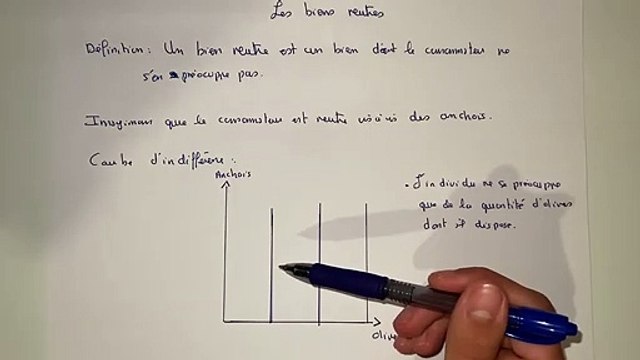 Les biens neutres
Définition: Un bien neutre est un bien dont le consommateur ne
s'en préoccupe pas.
Imaginons que le consommateur est neutre vis à vis des anchois.
Courbe d'indifférence:
Anchois
• L'individu ne se préoccupe
que de la quantité d'olives
dont il dispose.